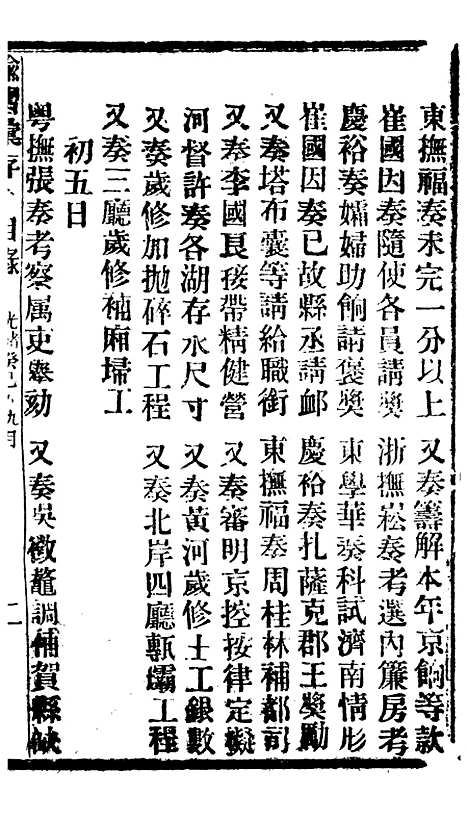 東撫福奏未完一分以上　又奏籌解本年京餉等款
崔國因奏隨使各員請獎　浙撫崧奏考選內簾房考
慶裕奏孀婦助餉請褒獎　東學華奏科試濟南情形
崔國因奏已故縣丞請䘏　慶裕奏扎薩克郡王獎勵
又奏塔布囊等請給職銜　東撫福奏周桂林補都司
又奏李國良接帶精健營　又奏審明京控按律定擬
河督許奏各湖存水尺寸　又奏黃河歲修土工銀數
又奏歲修加拋碎石工程　又奏北岸四廳甎壩工程
又奏三廳歲修補廂埽工
初五日
粵撫張奏考察属吏舉劾　又奏吳徵鼇調補賀縣缺
諭摺彙存　目錄　光緒癸巳　九月　二